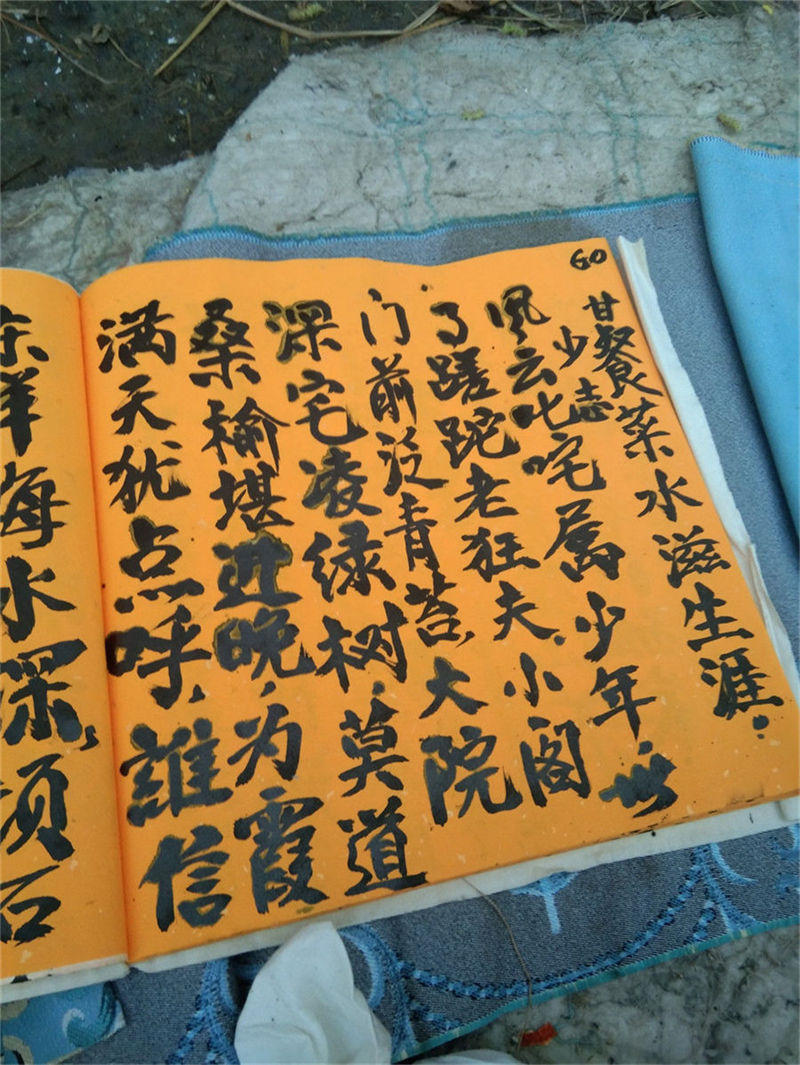 60
甘餐菜水滋生涯，
少志
风云叱咤属少年，
了蹉跎老狂夫。小阁
门前泛青苔，大院
深宅凌绿树。莫道
桑榆堪近晚，为霞
满天犹点呼，誰信
洋海水深，石